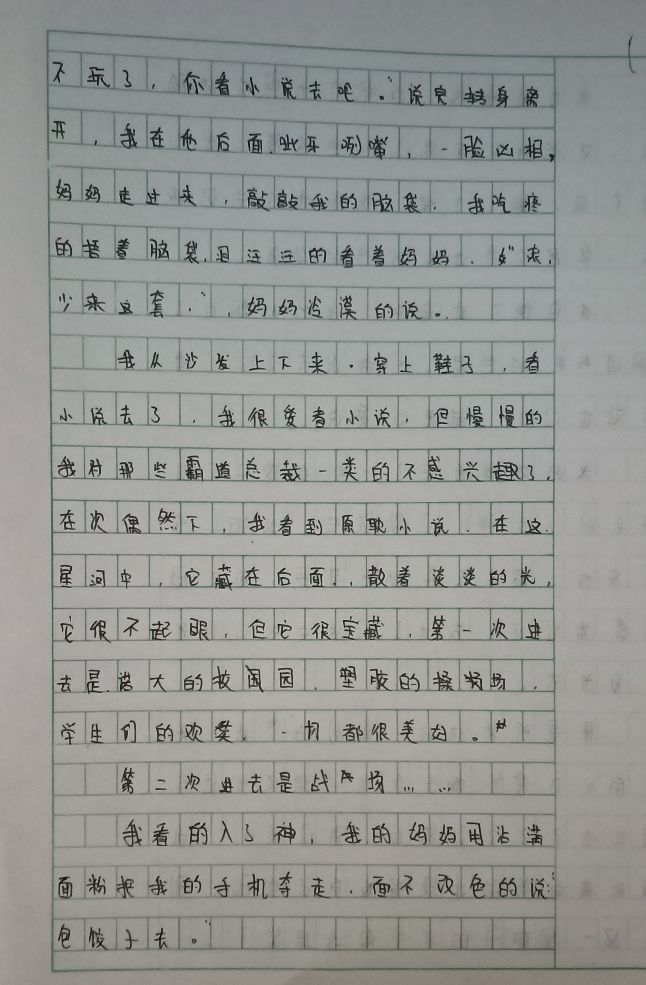 不玩了，你看小说去吧。"说完转身离
开，我在他后面呲牙咧嘴，一脸凶相，
妈妈走过来，敲敲我的脑袋．我吃疼
的捂着脑袋，泪汪汪的看着妈妈．"
少来这套．"，妈妈冷漠的说。
我从沙发上下来．穿上鞋子，看
小说去了．我很爱看小说，但慢慢的
我对那些霸道总裁一类的不感兴趣了，
在次偶然下，我看到原耽小说．在这
星河中，它藏在后面，散着淡淡的光，
它很不起眼，但它很宝藏，第一次进
去是诺大的校园，塑胶的操场，
学生们的欢笑．一切都很美好。"
第二次进去是战场……
我看的入了神，我的妈妈用沾满
面粉把我的手机夺走．面不改色的说："
包饺子去。"